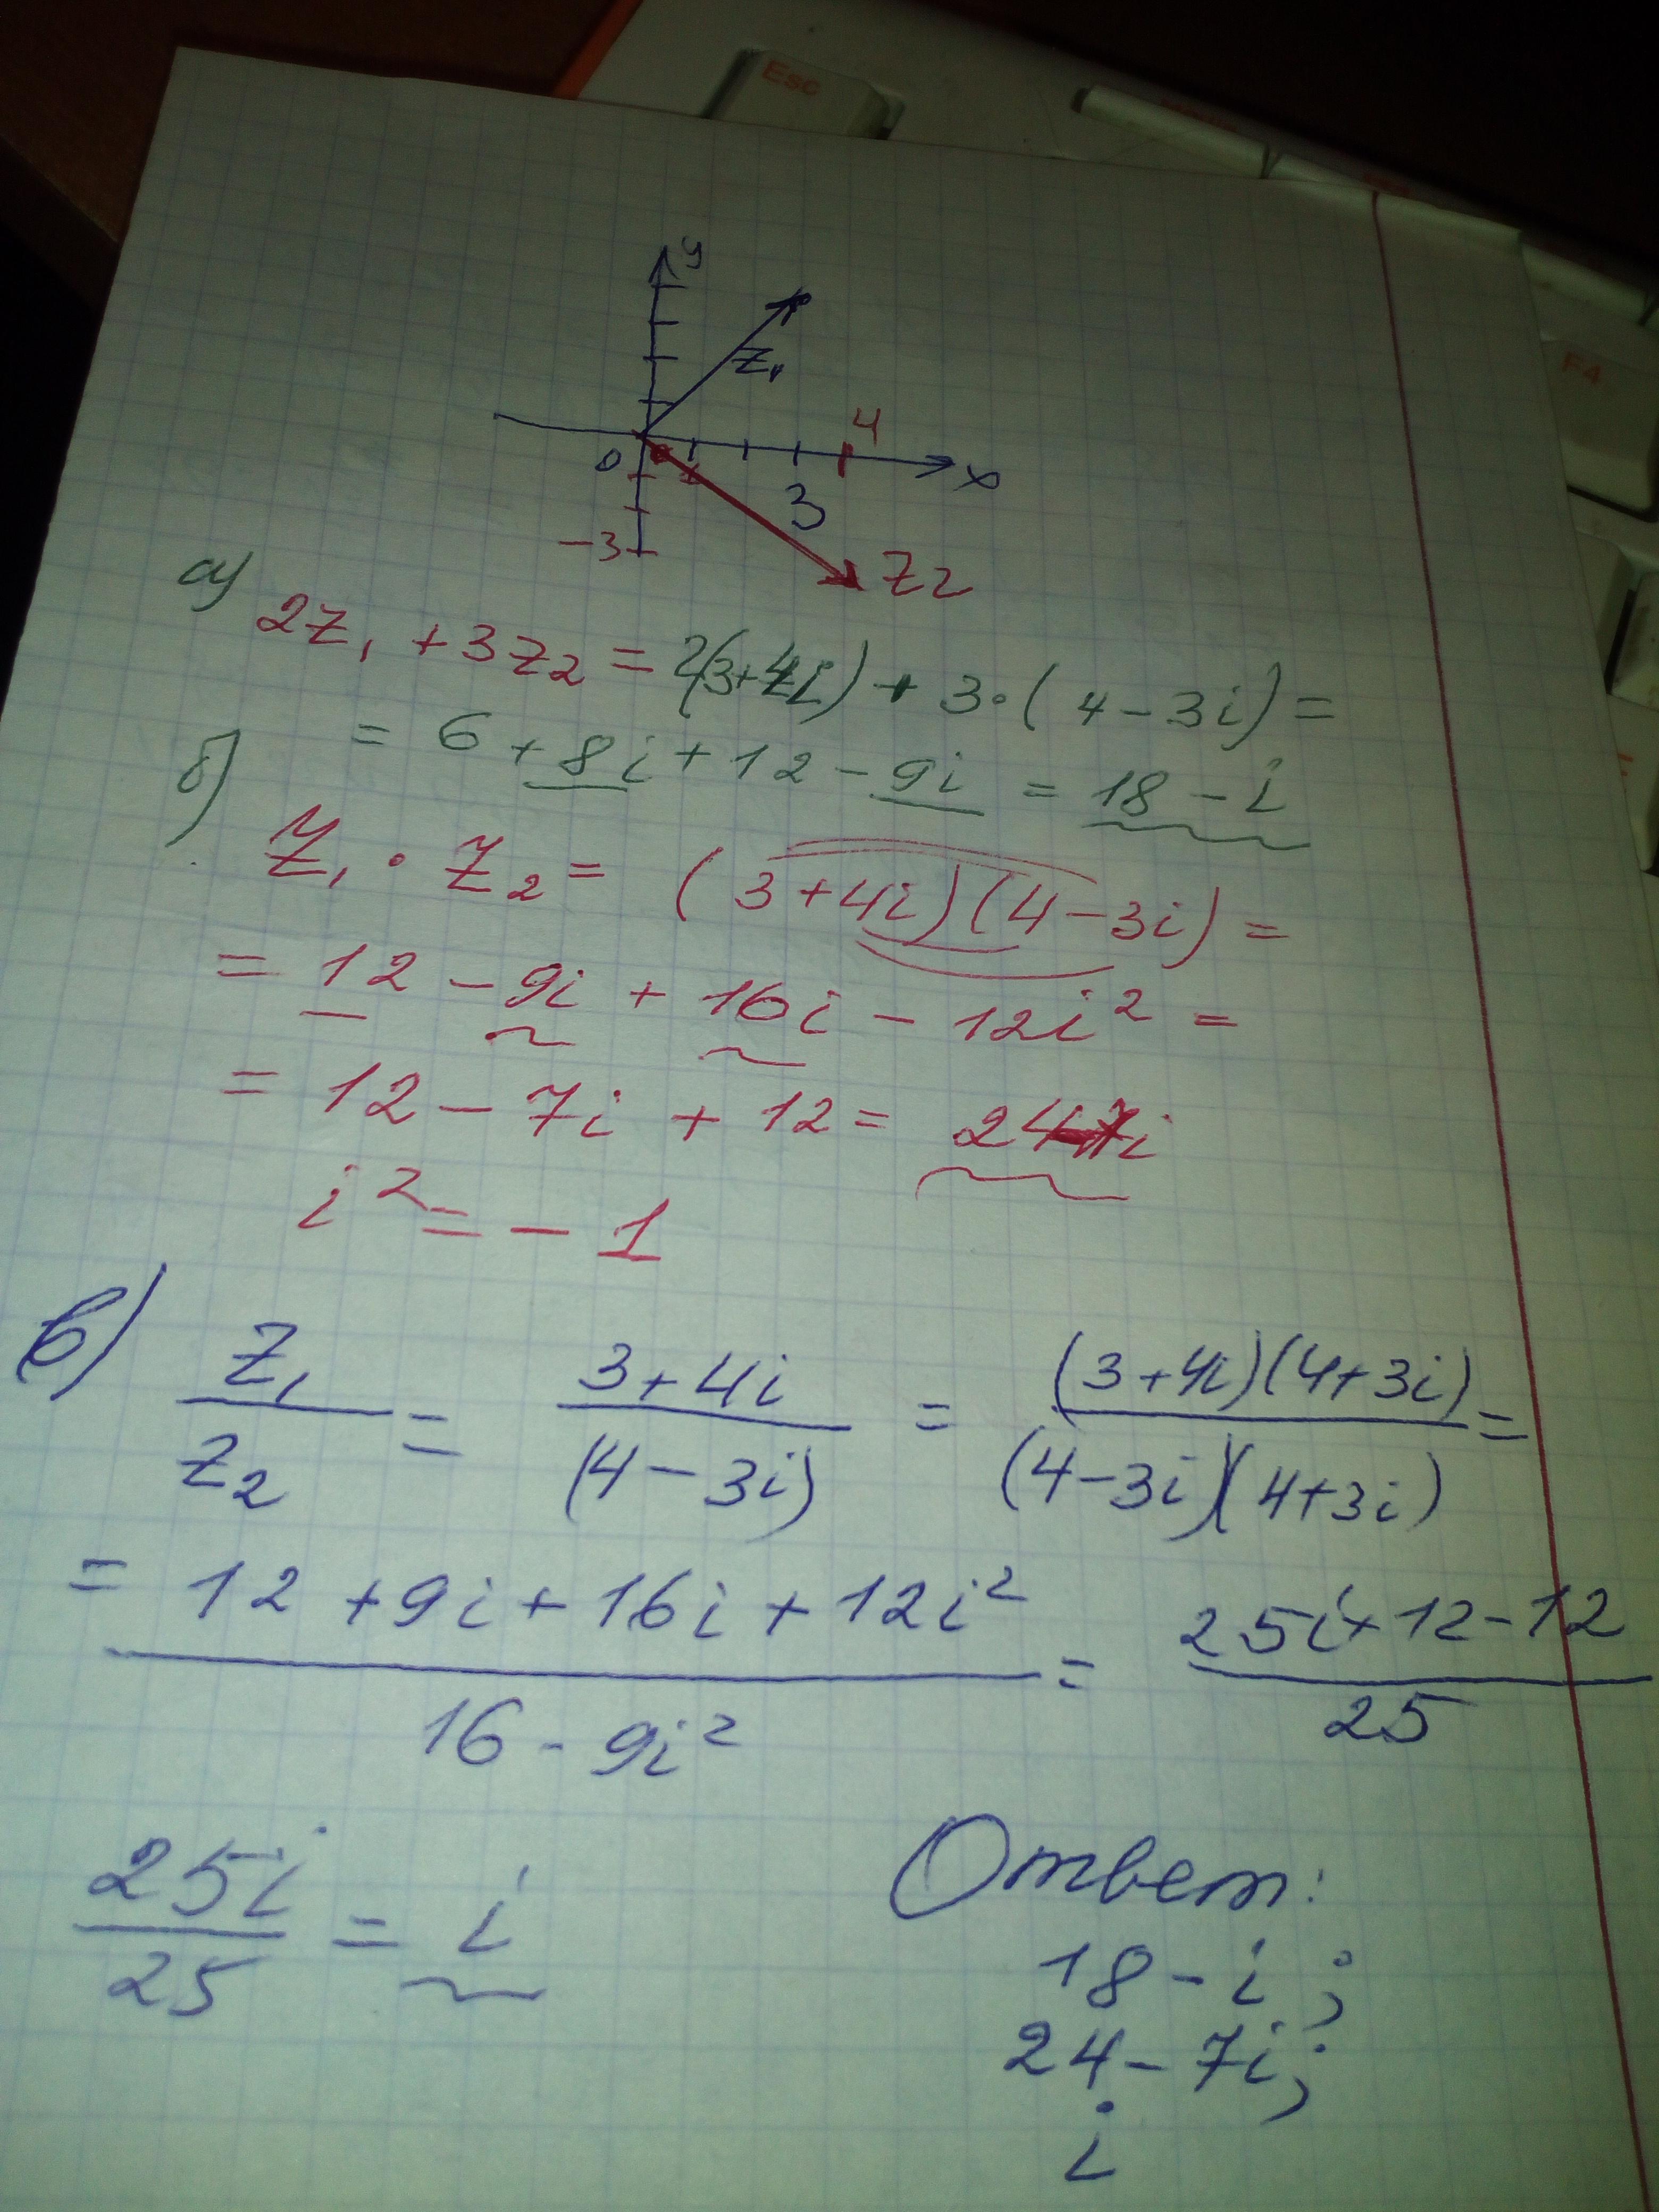 Esc
F4
y
z₁
4
0
1
3
x
-3
z₂
а)
2z₁ + 3z₂ = 2(3+4i) + 3·(4-3i) =
= 6 + 8i + 12 - 9i = 18 - i
б)
z₁ · z₂ = (3+4i)(4-3i) =
= 12 - 9i + 16i - 12i² =
= 12 - 7i + 12 = 24-7i
i² = -1
в) z₁/z₂ = 3+4i/(4-3i) = (3+4i)(4+3i)/(4-3i)(4+3i) =
= 12+9i+16i+12i²/16-9i² = 25i+12-12/25
25i/25 = i
Ответ:
18-i;
24-7i;
i